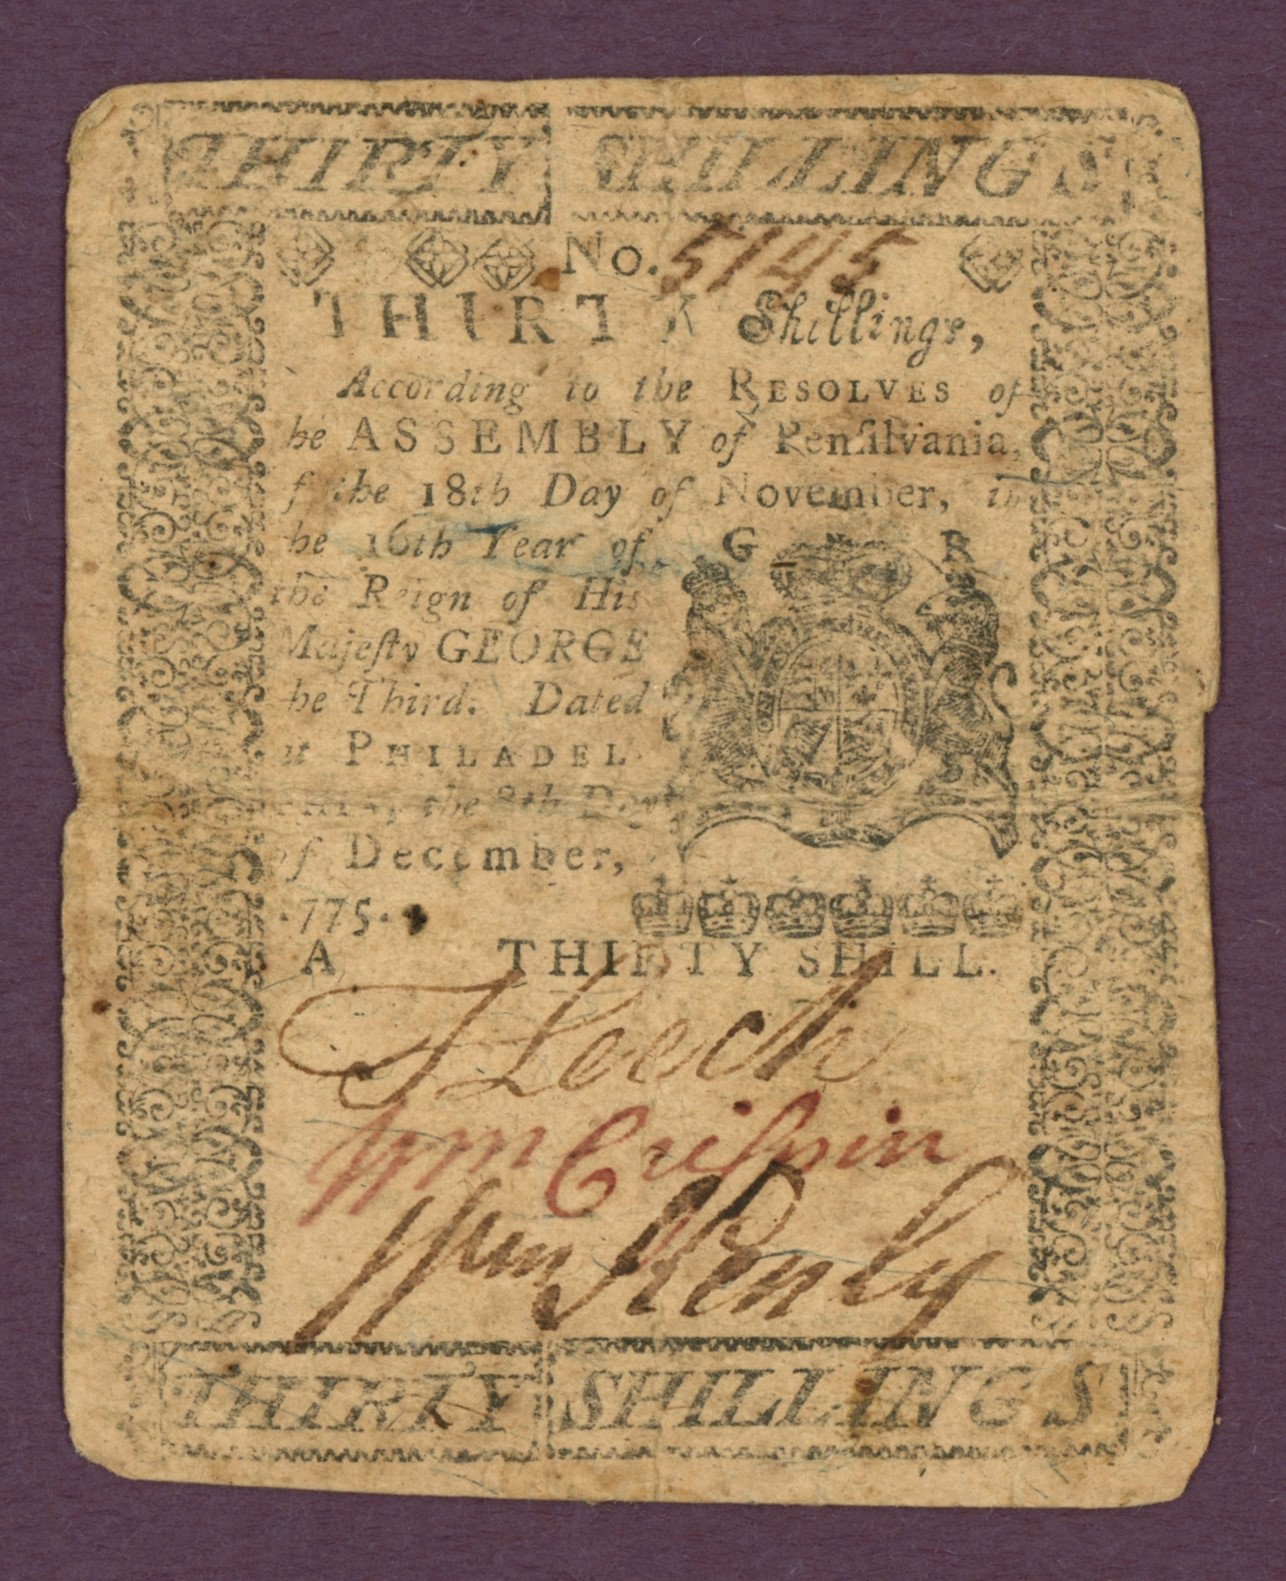 THIRTY SHILLINGS
No. 5145
THIRTY Shillings,
According to the RESOLVES of
he ASSEMBLY of Pensilvania,
f the 18th Day of November, in
he 16th Year of
G R
the Reign of His
Majesty GEORGE
he Third. Dated
PHILADEL
the 8th Day
of December,
775.
A THIRTY SHILL.
T Leech
Wm Crispin
Wm Kenly
THIRTY SHILLINGS